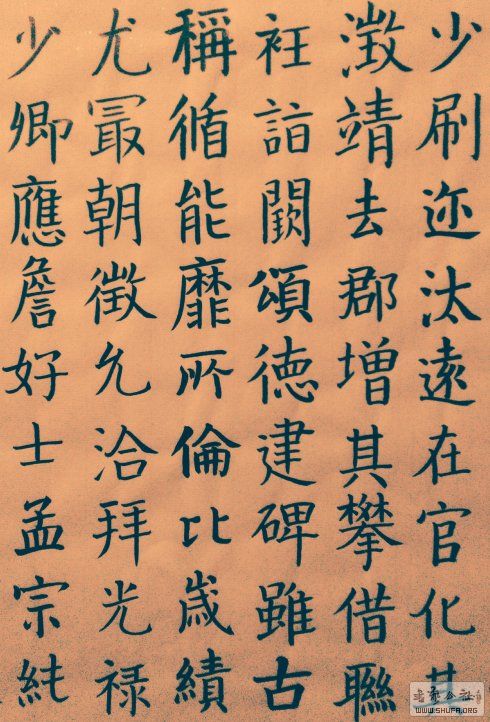 少刷迩汰遠在官化
澂靖去郡增其攀借聯
衽詣闕頌德建碑雖古
稱循能靡所倫比歲績
尤冣朝徵允洽拜光禄
少卿應詹好士孟宗純
WWW.SHUFA.ORG